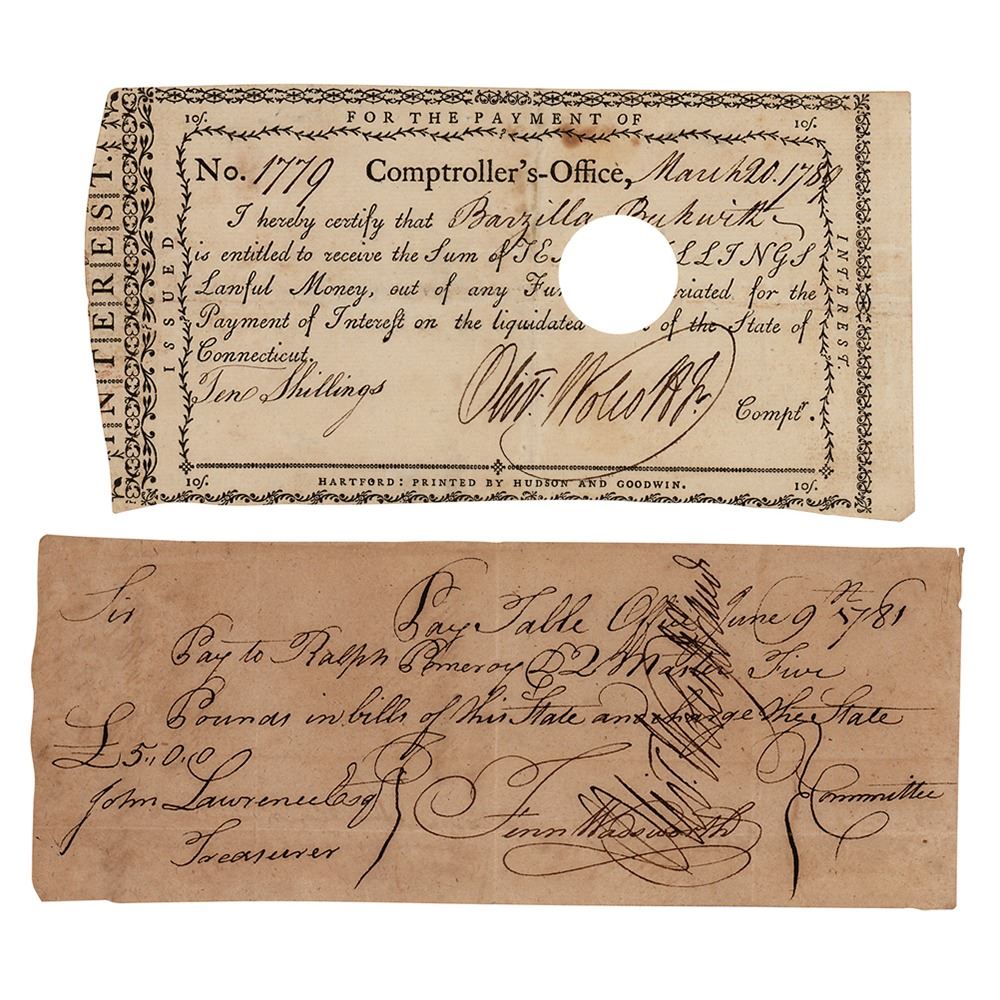 10ſ. FOR THE PAYMENT OF 10ſ.
INTEREST.
ISSUED
INTEREST
No. 1779 Comptroller's-Office, March 20. 1789
I hereby certify that Barzilla Bekwith
is entitled to receive the Sum of TE LLINGS
Lawful Money, out of any Fun riated for the
Payment of Intereſt on the liquidated of the State of
Connecticut.
Ten Shillings
Olivr. Wolcott Jr. Comptr.
10ſ. HARTFORD: PRINTED BY HUDSON AND GOODWIN. 10ſ.
Sir Pay Table Office June 9th 1781
Pay to Ralph Pomeroy D Q Master Five
Pounds in bills of this State and charge the State
£5,,0,,0
John Lawrence Esqr Fenn Wadsworth Committee
Treasurer